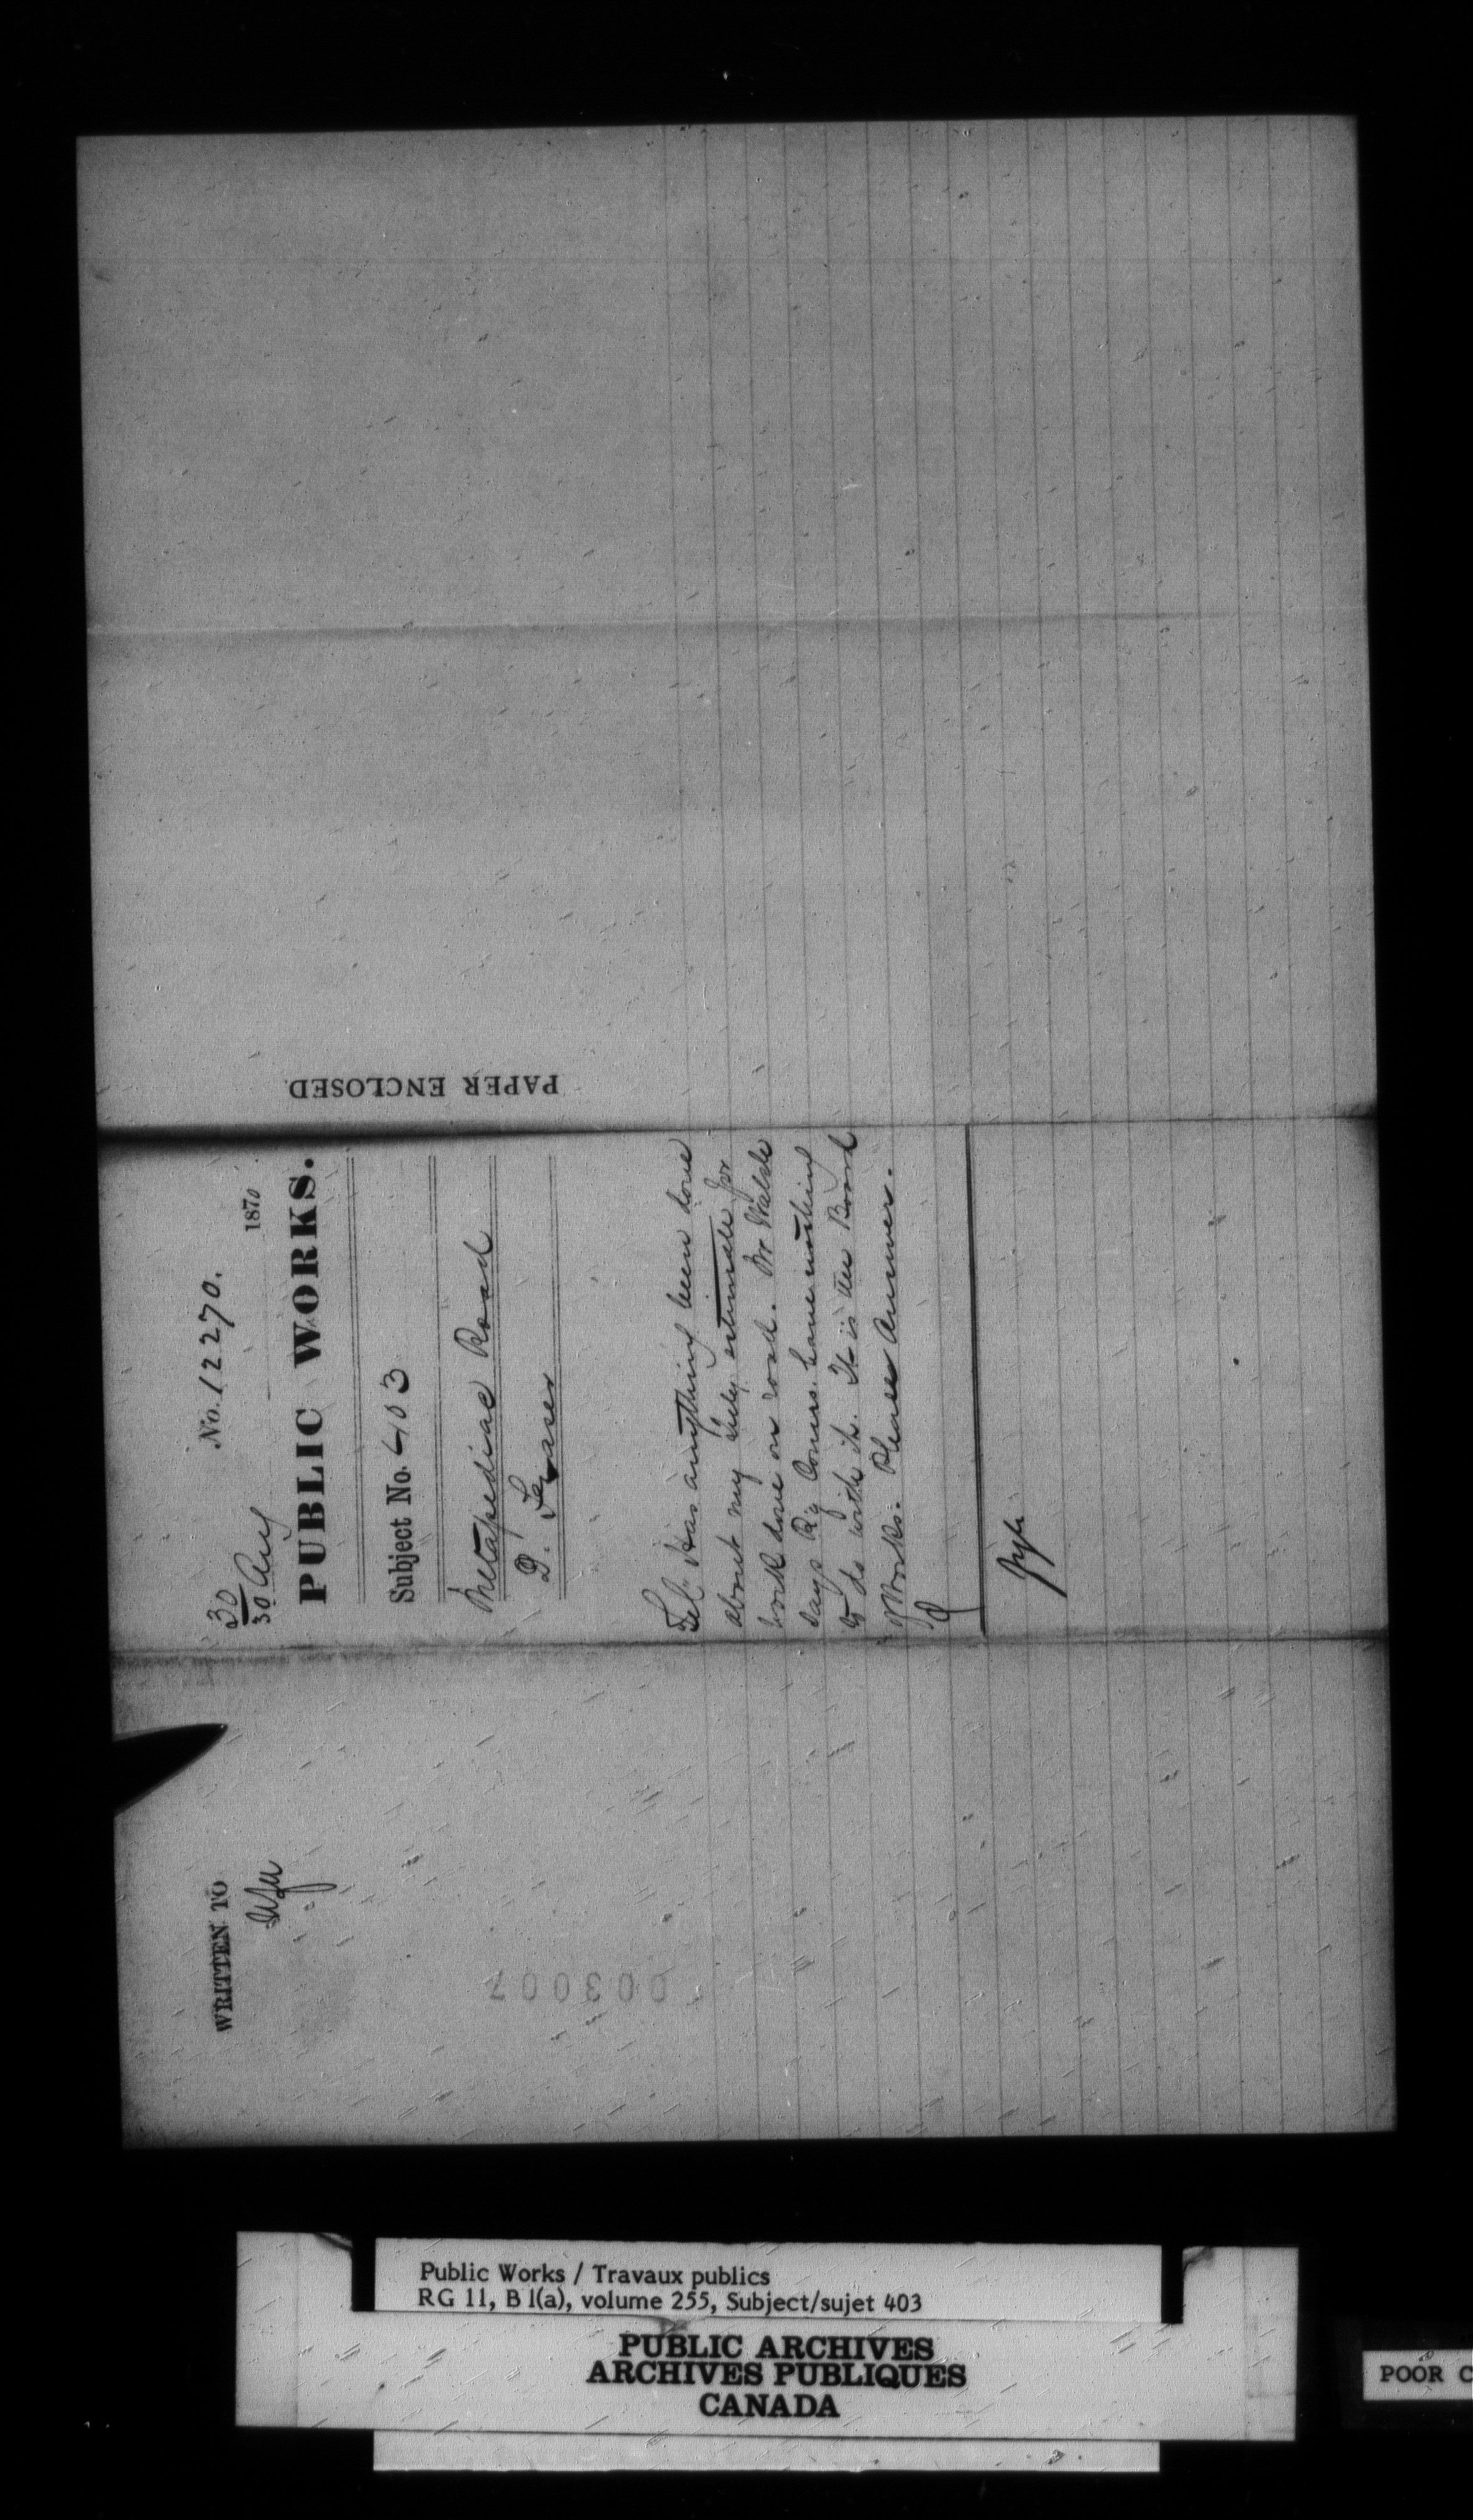 No. 12270.
30
30 Aug 1870
PUBLIC WORKS.
Subject No. 403
Metapediac Road
D. Fraser
Tel. Has anything been done
about my July estimate for
work done on road. Mr Walsh
says Ry Comrs. have nothing
to do with it. It is the Board
of Works. Please Answer.
PAPER ENCLOSED
WRITTEN TO
003007
Public Works / Travaux publics
RG 11, B 1(a), volume 255, Subject/sujet 403
PUBLIC ARCHIVES
ARCHIVES PUBLIQUES
CANADA
POOR C